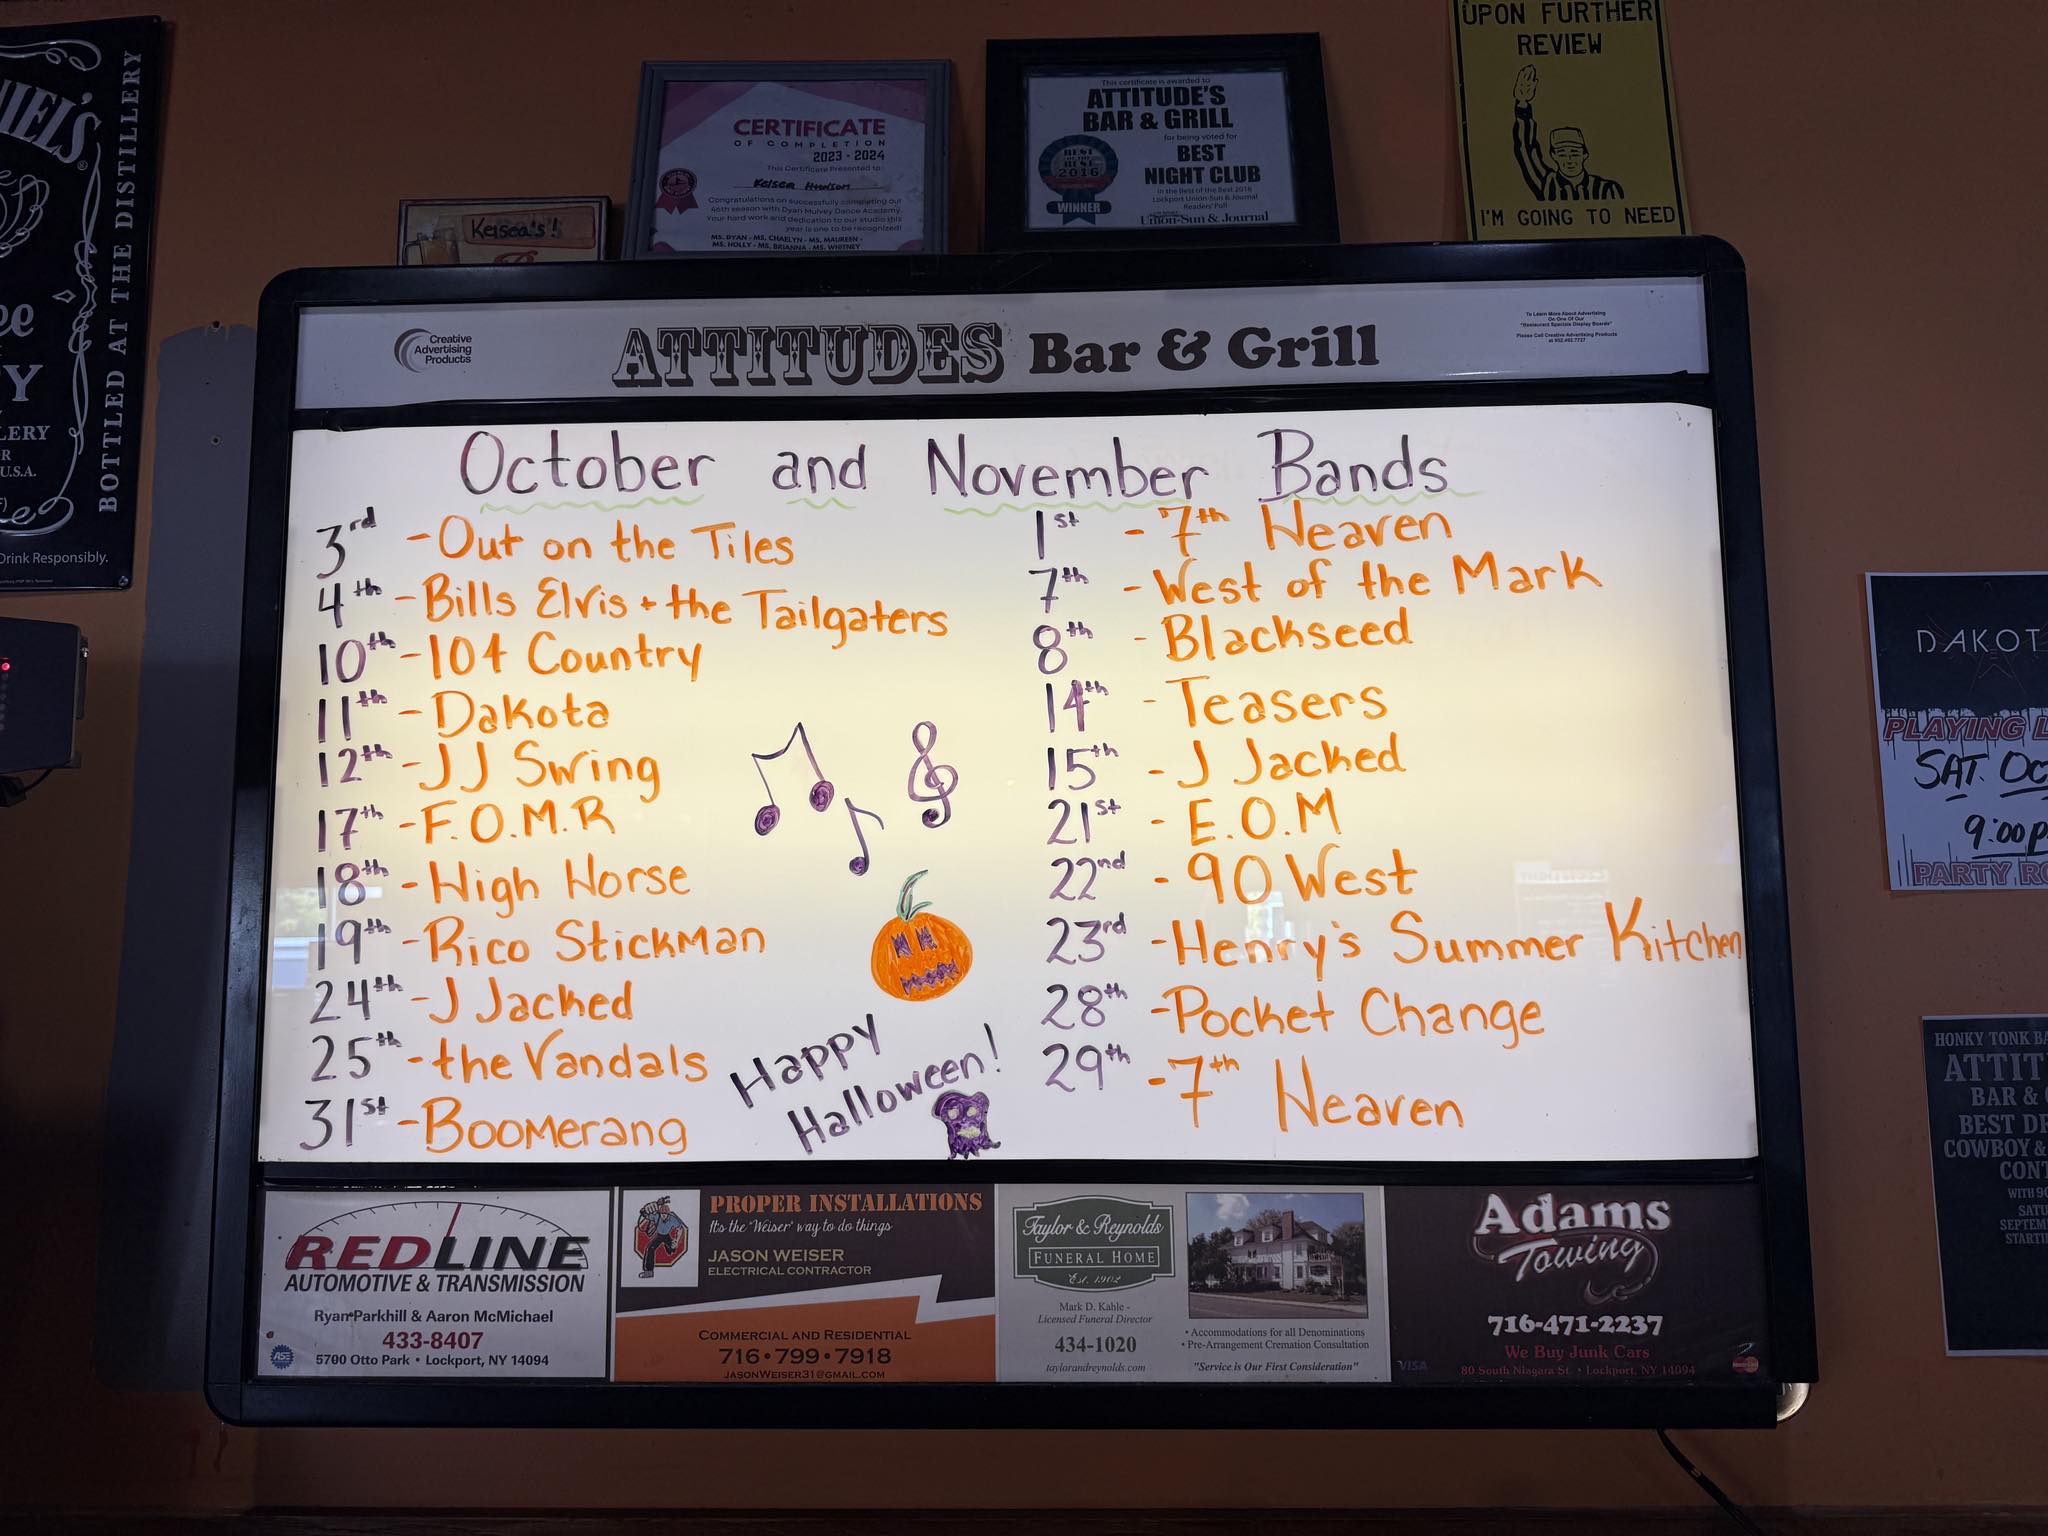 NIEL'S
BOTTLED AT THE DISTILLERY
LERY
U.S.A.
Drink Responsibly.
Kelsea's!
CERTIFICATE
OF COMPLETION
2023 - 2024
This Certificate Presented to:
Kelsea Hudson
Congratulations on successfully completing our
46th season with Dyan Mulvey Dance Academy.
Your hard work and dedication to our studio this
year is one to be recognized!
MS. DYAN - MS. CHAELYN - MS. MAUREEN -
MS. HOLLY - MS. BRIANNA - MS. WHITNEY
This certificate is awarded to
ATTITUDE'S
BAR & GRILL
for being voted for
BEST
NIGHT CLUB
in the Best of the Best 2016
Lockport Union-Sun & Journal
Readers' Poll
Union-Sun & Journal
BEST
OF THE
BEST
2016
WINNER
UPON FURTHER
REVIEW
I'M GOING TO NEED
Creative
Advertising
Products
ATTITUDES Bar & Grill
To Learn More About Advertising
On One Of Our
"Restaurant Specials Display Boards"
Please Call Creative Advertising Products
at 952.492.7727
October and November Bands
3rd - Out on the Tiles
4th - Bills Elvis + the Tailgaters
10th - 104 Country
11th - Dakota
12th - JJ Swing
17th - F.O.M.R
18th - High Horse
19th - Rico Stickman
24th - J Jacked
25th - the Vandals
31st - Boomerang
Happy
Halloween!
1st - 7th Heaven
7th - West of the Mark
8th - Blackseed
14th - Teasers
15th - J Jacked
21st - E.O.M
22nd - 90 West
23rd - Henry's Summer Kitchen
28th - Pocket Change
29th - 7th Heaven
REDLINE
AUTOMOTIVE & TRANSMISSION
Ryan Parkhill & Aaron McMichael
433-8407
5700 Otto Park • Lockport, NY 14094
ASE
PROPER INSTALLATIONS
It's the "Weiser" way to do things
JASON WEISER
ELECTRICAL CONTRACTOR
COMMERCIAL AND RESIDENTIAL
716•799•7918
JASONWEISER31@GMAIL.COM
Taylor & Reynolds
FUNERAL HOME
Est. 1902
Mark D. Kahle -
Licensed Funeral Director
434-1020
taylorandreynolds.com
• Accommodations for all Denominations
• Pre-Arrangement Cremation Consultation
"Service is Our First Consideration"
Adams
Towing
716-471-2237
We Buy Junk Cars
VISA
80 South Niagara St. • Lockport, NY 14094
DAKOT
PLAYING L
SAT. OC
9:00 P
PARTY RO
HONKY TONK BA
ATTIT
BAR &
BEST DR
COWBOY &
CONT
WITH 90
SATU
SEPTEM
STARTIN